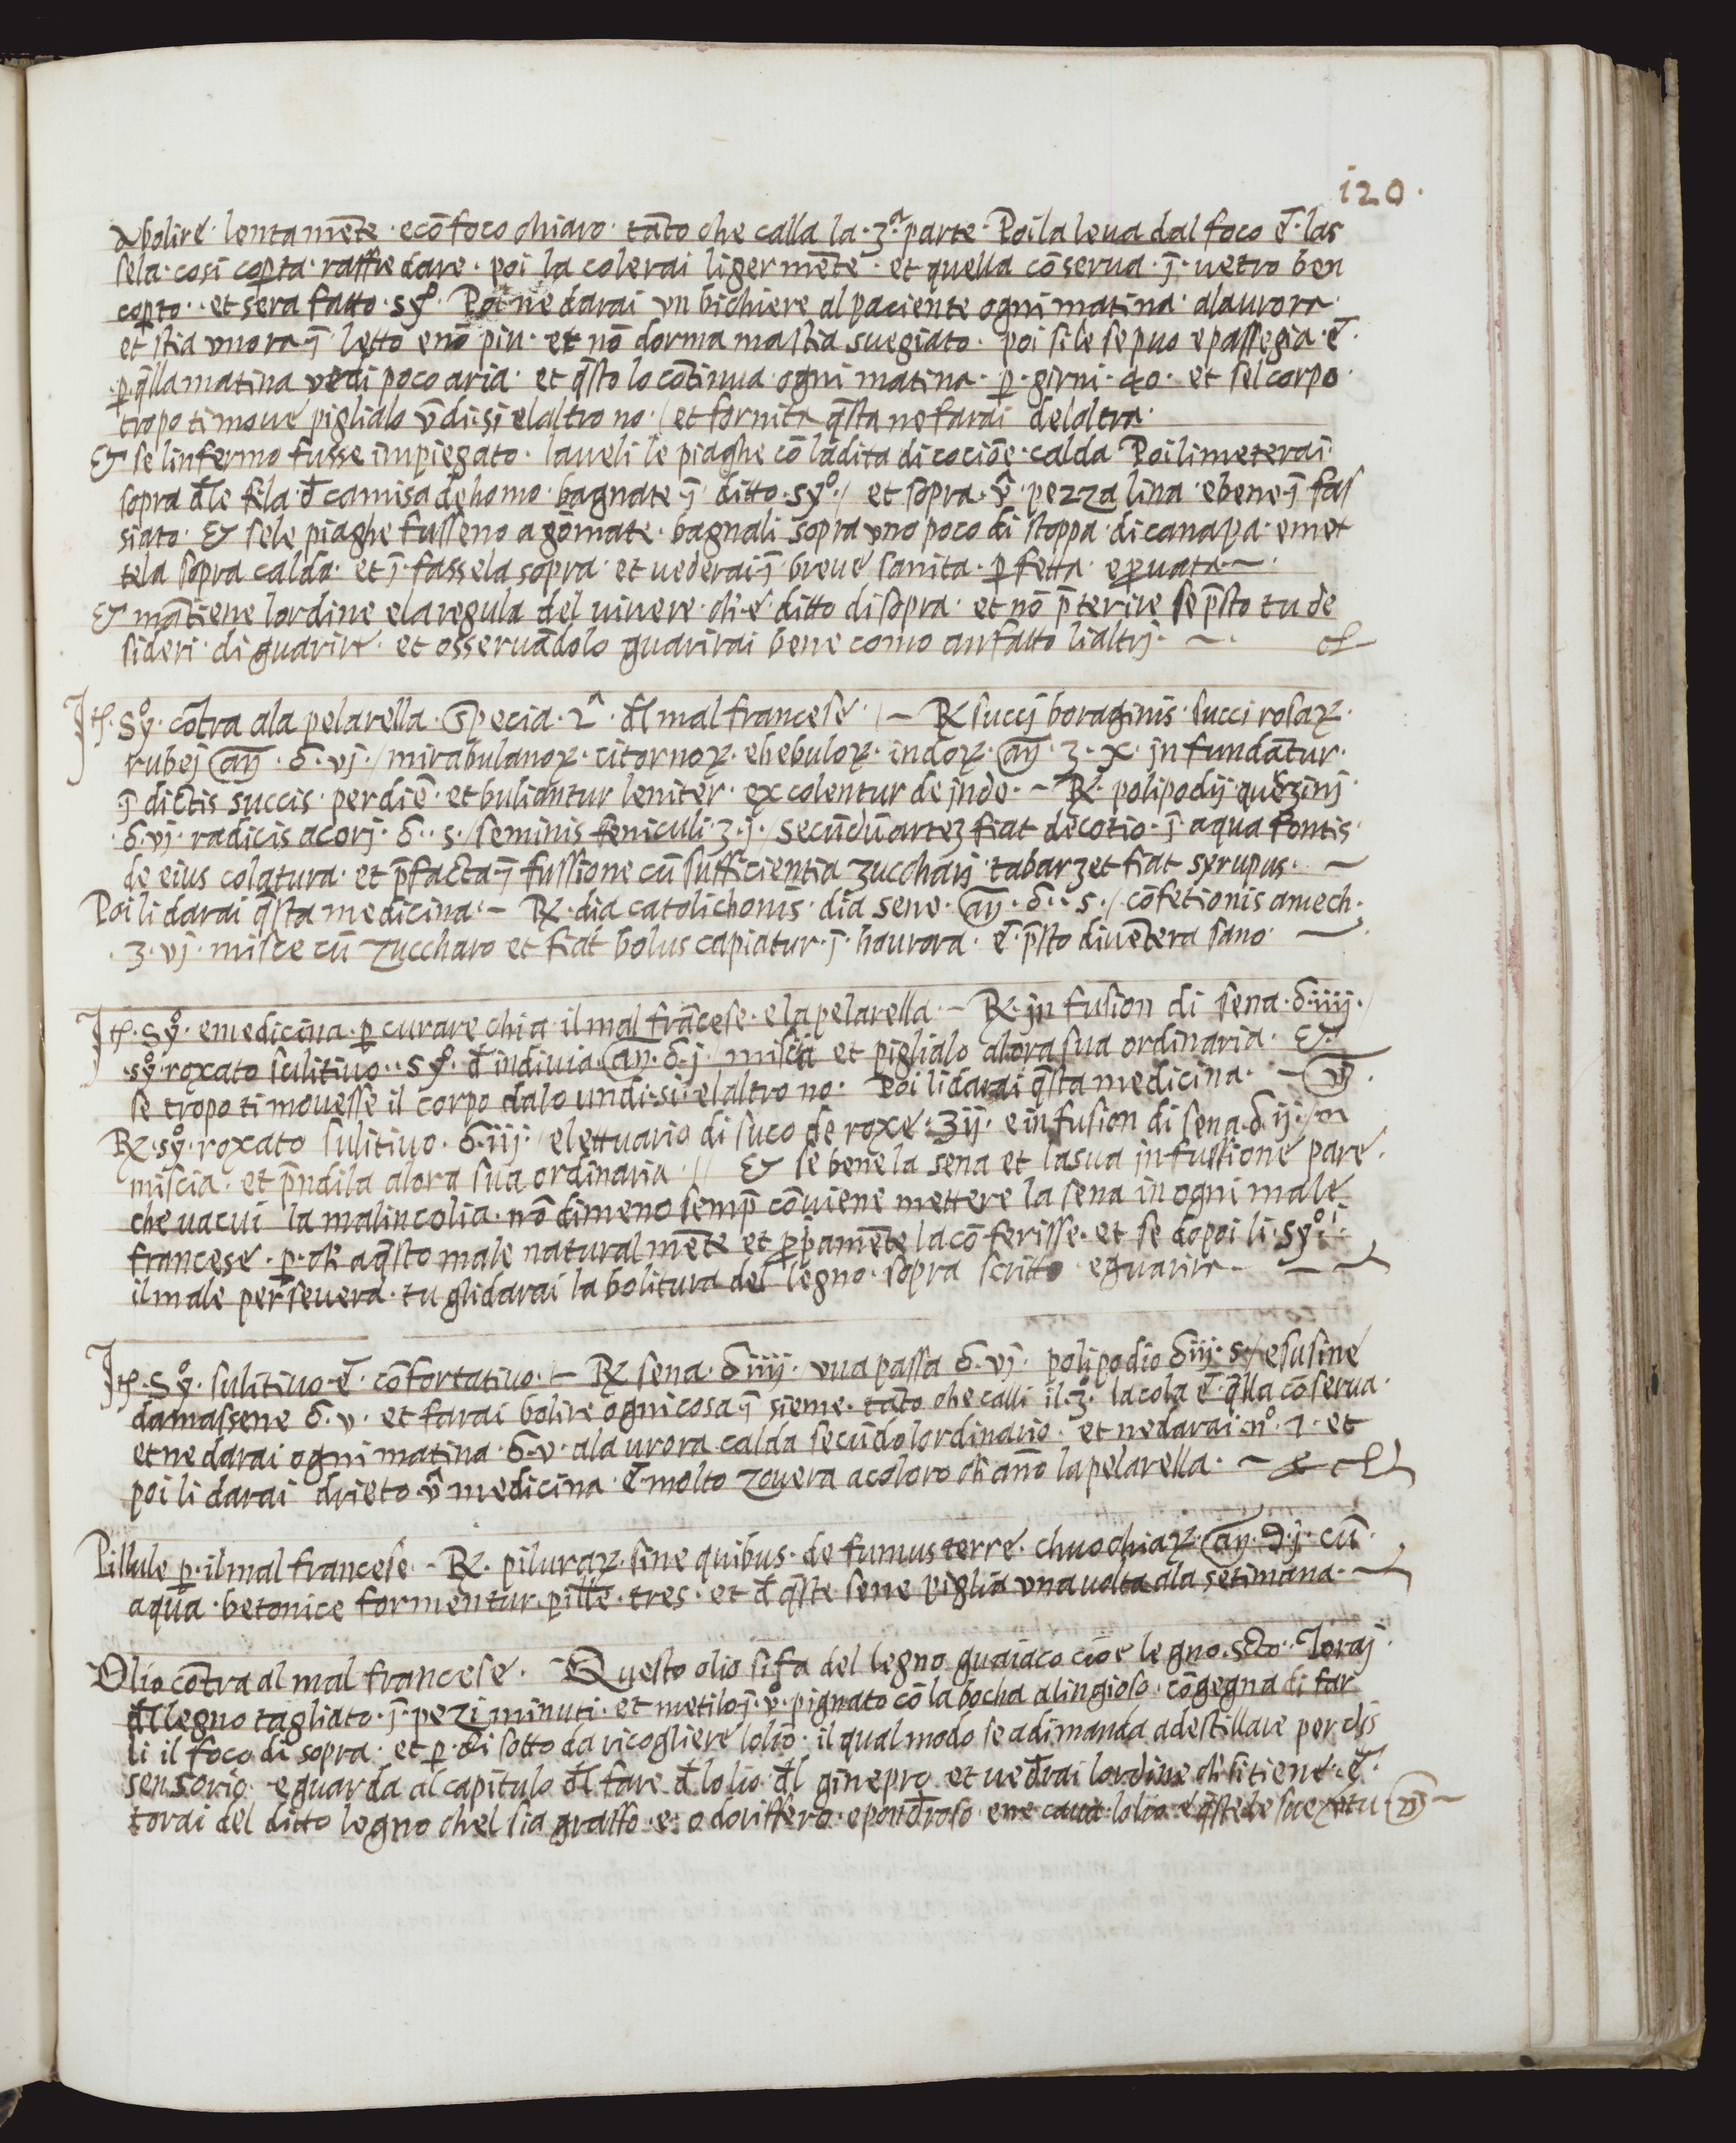 i20.
a bolire lentamēte ecō foco chiaro tāto che calla la 3ᵃ parte. Poi la leua dal foco ē las
sela cosi coꝑta raffredare. poi la colerai ligermēte et quella cōserua ȷ̄ uetro ben
coꝑto. et sera fatto syᵒ. Poi ne darai vn bichiere al paciente ogni matina alaurora
et stia vnora ȷ̄ letto enō piu. et nō dorma ma stia suegiato. poi si le se puo e passegia ē
ꝑ q̄lla matina vedi poco aria. et q̄sto lo cōtinua ogni matina ꝑ girni 40. et sel corpo
tropo ti moue piglialo v̄ di si elaltro no / et fornita q̄sta ne farai delaltra
& se linfermo fusse impiegato. laueli le piaghe cō la dita di cociōe calda Poi li meterai
sopra đle fila đ camisa de homo bagnate ȷ̄ ditto syᵒ / et sopra v̄ pezza lina e bene ȷ̄ fas
siato. & se le piaghe fusseno a gōmate. bagnali sopra vno poco di stoppa di canapa emet
tela sopra calda. et ȷ̄ fassela sopra et uederai ȷ̄ breue sanita ꝑfetta eꝓuata
& mātiene lordine e la regula del uiuere ch̄ e ditto di sopra. et nō p̄terire se p̄sto tu de
sideri di guarire et osseruādolo guarirai bene como an fatto li altrj.
Itē. Syᵒ cōtra ala pelarella specia 2ᵃ đl mal francese / ℞ succj boraginis succi rosaꝝ
rubej añ ℥ vj / mirabulanoꝝ citornoꝝ ehebuloꝝ indoꝝ añ ʒ x jnfundātur
ȷ̄ dictis succis per diē et buliantur leniter excolentur de jnde. ℞ polipodij querzinj
℥ vj radicis acorj ℥ s / seminis feniculi ʒ j / secūdū artez fiat decotio ȷ̄ aqua fontis
de eius colatura et p̄facta ȷ̄fussione cū sufficientia zucchari tabarzet fiat syrupus.
Poi li darai q̄sta medicina ℞ dia catolichonis dia sene añ ℥ s / cōfetionis amech
ʒ vj misce cū zuccharo et fiat bolus capiatur ȷ̄ haurora ē p̄sto diuētera sano
Itē. Syᵒ emedicina ꝑ curare chi a il mal frācese e la pelarella ℞ jnfusion di sena ℥ iiij
syᵒ roxato sulitiuo syᵒ đ indiuia añ ℥ j miscia et piglialo alora sua ordinaria &
se tropo ti mouesse il corpo dalo un di si elaltro no. Poi li darai q̄sta medicina
℞ syᵒ roxato sulitiuo ℥ iij / elettuario di suco de roxe ʒ ij e infusion di sena ℥ ij /
miscia et p̄ndila alora sua ordinaria // & se bene la sena et la sua jnfussione pare
che uacui la malincolia nō dimeno semp̄ cōuiene mettere la sena in ogni male
francese ꝑ ch̄ a q̄sto male naturalmēte et ꝓpiamēte la cōferisse et se dopoi li syⁱ
il male perseuera tu gli darai la bolitura del legno sopra scritto eguarira
Itē. Syᵒ sulitiuo ē cōfortatiuo ℞ sena ℥ iiij vua passa ℥ vj polipodio ℥ iij s / e susine
damassene ℥ v et farai bolire ogni cosa ȷ̄sieme tāto che calli il 3ᵒ la cola ē q̄lla cōserua
et ne darai ogni matina ℥ v alaurora calda secūdo lordinario et ne darai nᵒ 7 et
poi li darai drieto v̄ medicina ē molto zouera a coloro ch̄ anō la pelarella.
Pillule ꝑ il mal francese ℞ piluraꝝ sine quibus de fumus terre chuochiaꝝ añ ℈ j cū
aqua betonice formentur pille tres et đ q̄ste sene piglia vna uolta ala setimana
Olio cōtra al mal francese. Questo olio si fa del legno guaiaco cioe legno scto Toraj
đl legno tagliato ȷ̄ pezi minuti et metilo ȷ̄ vᵒ pignato cō la bocha alingioso cōgegna di far
li il foco di sopra et ꝑ di sotto da ricogliere lolio il qual modo se adimanda a destillare per dis
sensorio eguarda al capitulo đl fare đ lolio đl ginepro et uedrai lordine ch̄ si tiene ē
torai del ditto legno chel sia grasso e odoriffero eponđroso ene caua lolio